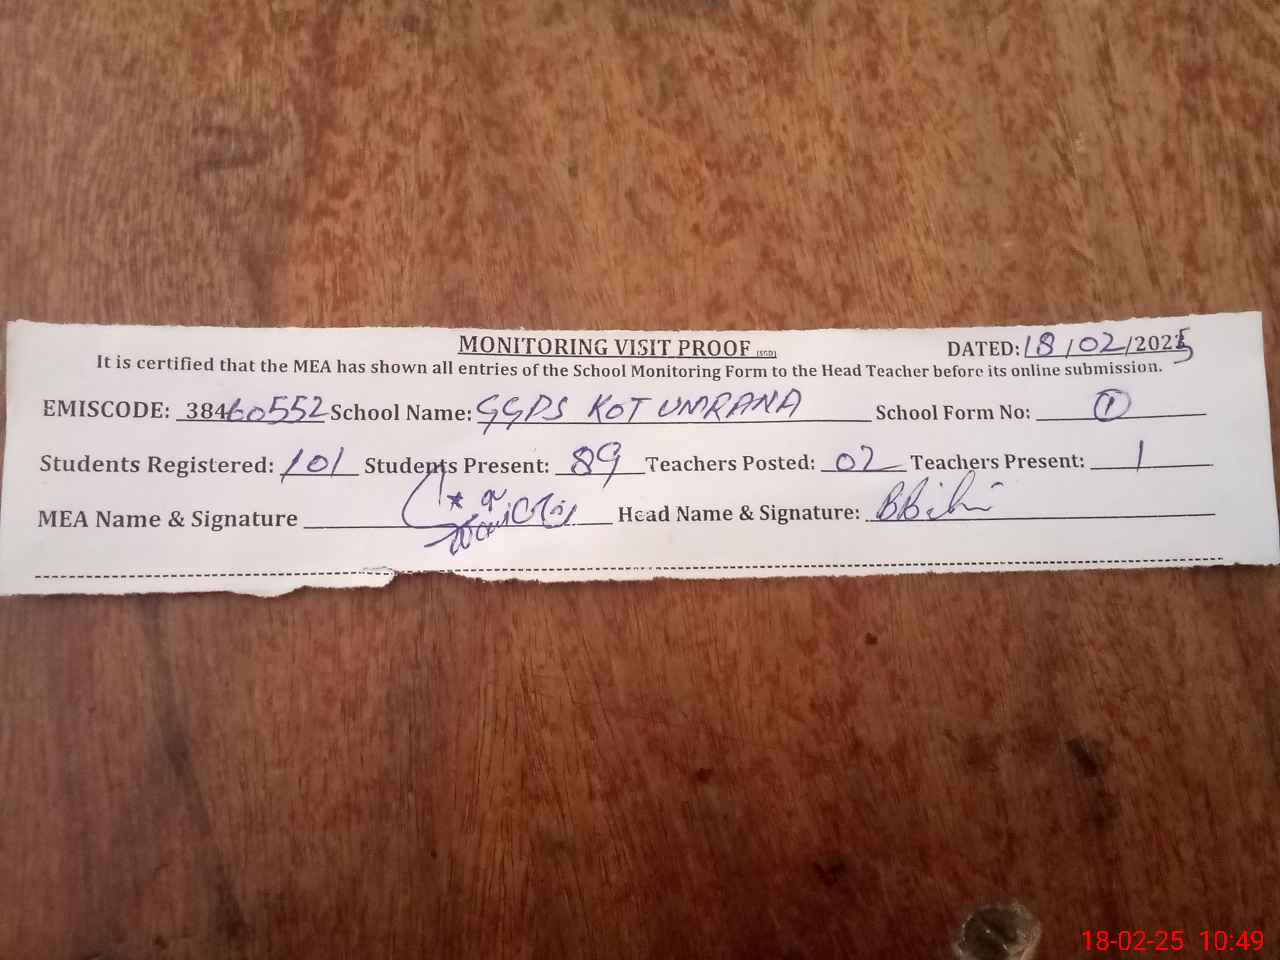 MONITORING VISIT PROOF (SGD)
DATED: 18/02/2025
It is certified that the MEA has shown all entries of the School Monitoring Form to the Head Teacher before its online submission.
EMISCODE: 38460552 School Name: GGPS KOT UMRANA School Form No: 1
Students Registered: 101 Students Present: 89 Teachers Posted: 02 Teachers Present: 1
MEA Name & Signature Head Name & Signature:
18-02-25 10:49